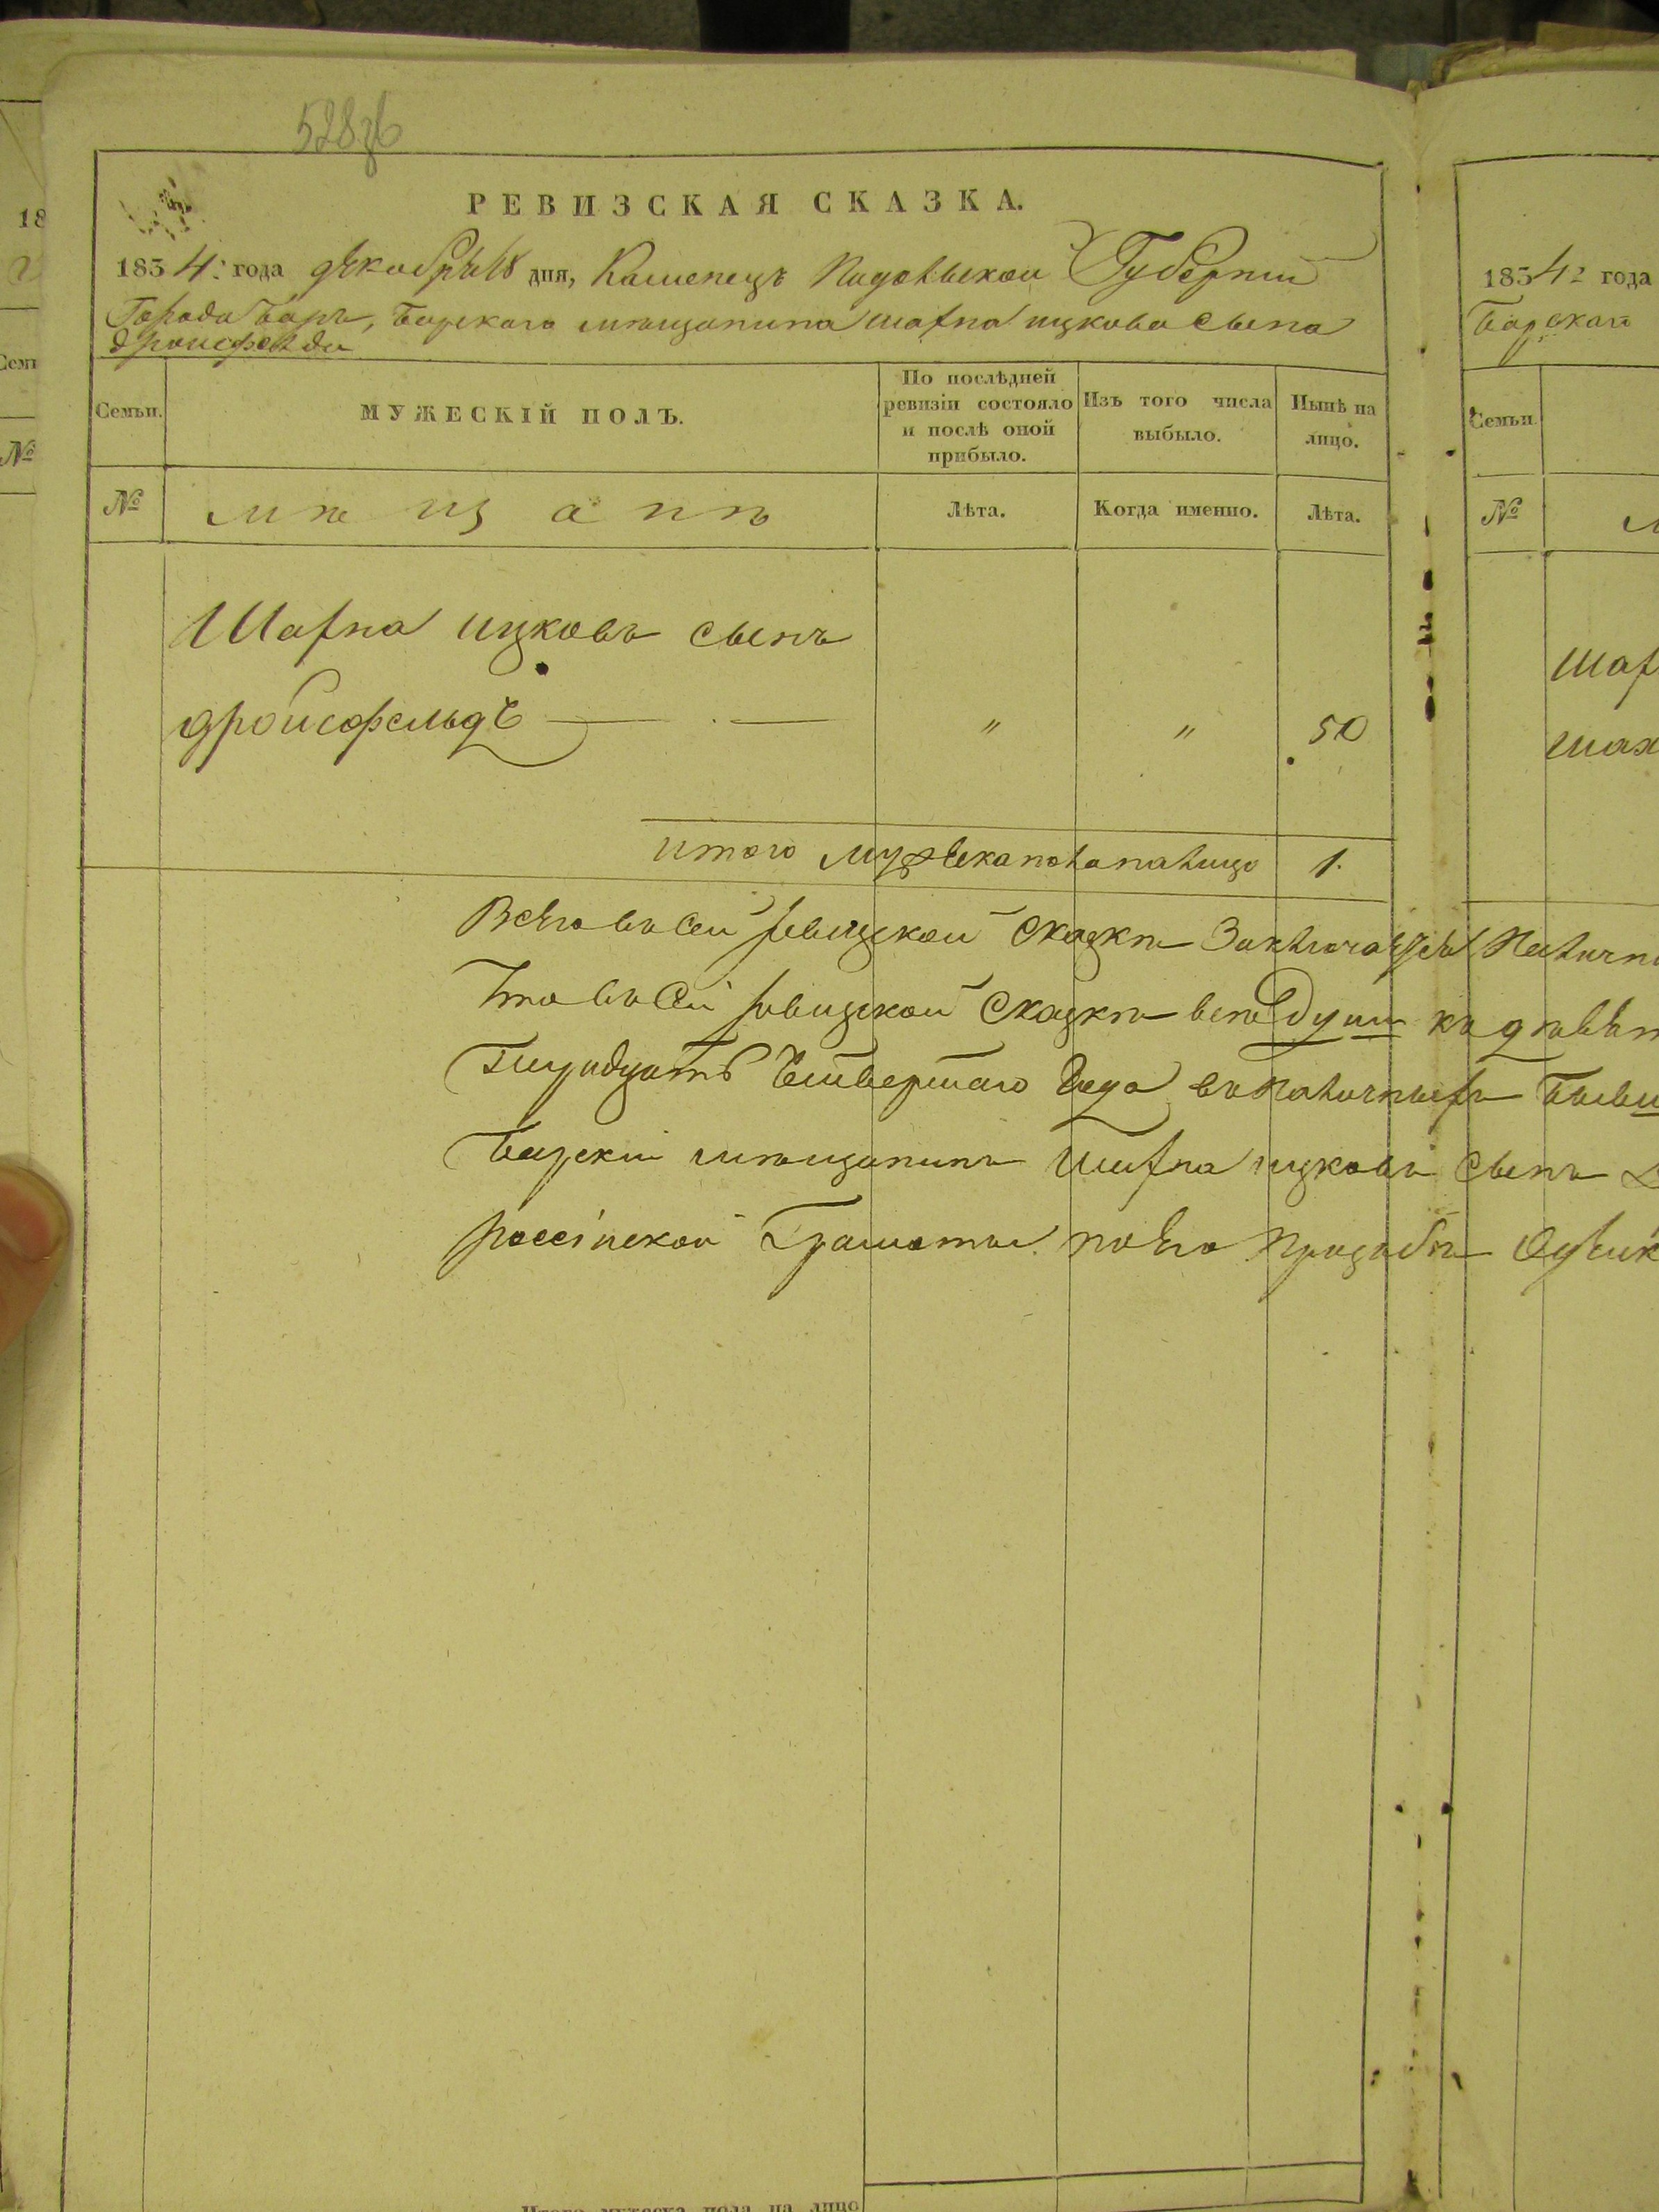 528зв
РЕВИЗСКАЯ СКАЗКА.
1834: года декабря 18 дня, Каменецъ Подольской Губерніи
Города Бара, Барскаго мѣщанина шаѓна ицкова сына
дройсфельда
Семьи.
МУЖЕСКІЙ ПОЛЪ.
По послѣдней ревизіи состояло и послѣ оной прибыло.
Изъ того числа выбыло.
Нынѣ на лицо.
№
мѣщанъ
Лѣта.
Когда именно.
Лѣта.
Шахна ицковъ сынъ
дройсфельдъ — . — " " 50
итого мужеска пола на лицо 1.
Всего въ сей ревизской сказкѣ Заключается Налично
Что въ сей ревизской сказкѣ всѣ души
тридцать Четвертаго года въ наличныхъ
Барскій мѣщанинъ Шахна ицковъ сынъ
россійской Грамоты по его прозьбѣ
Итого мужеска пола на лицо
1834 года
Барскаго
Семьи
№